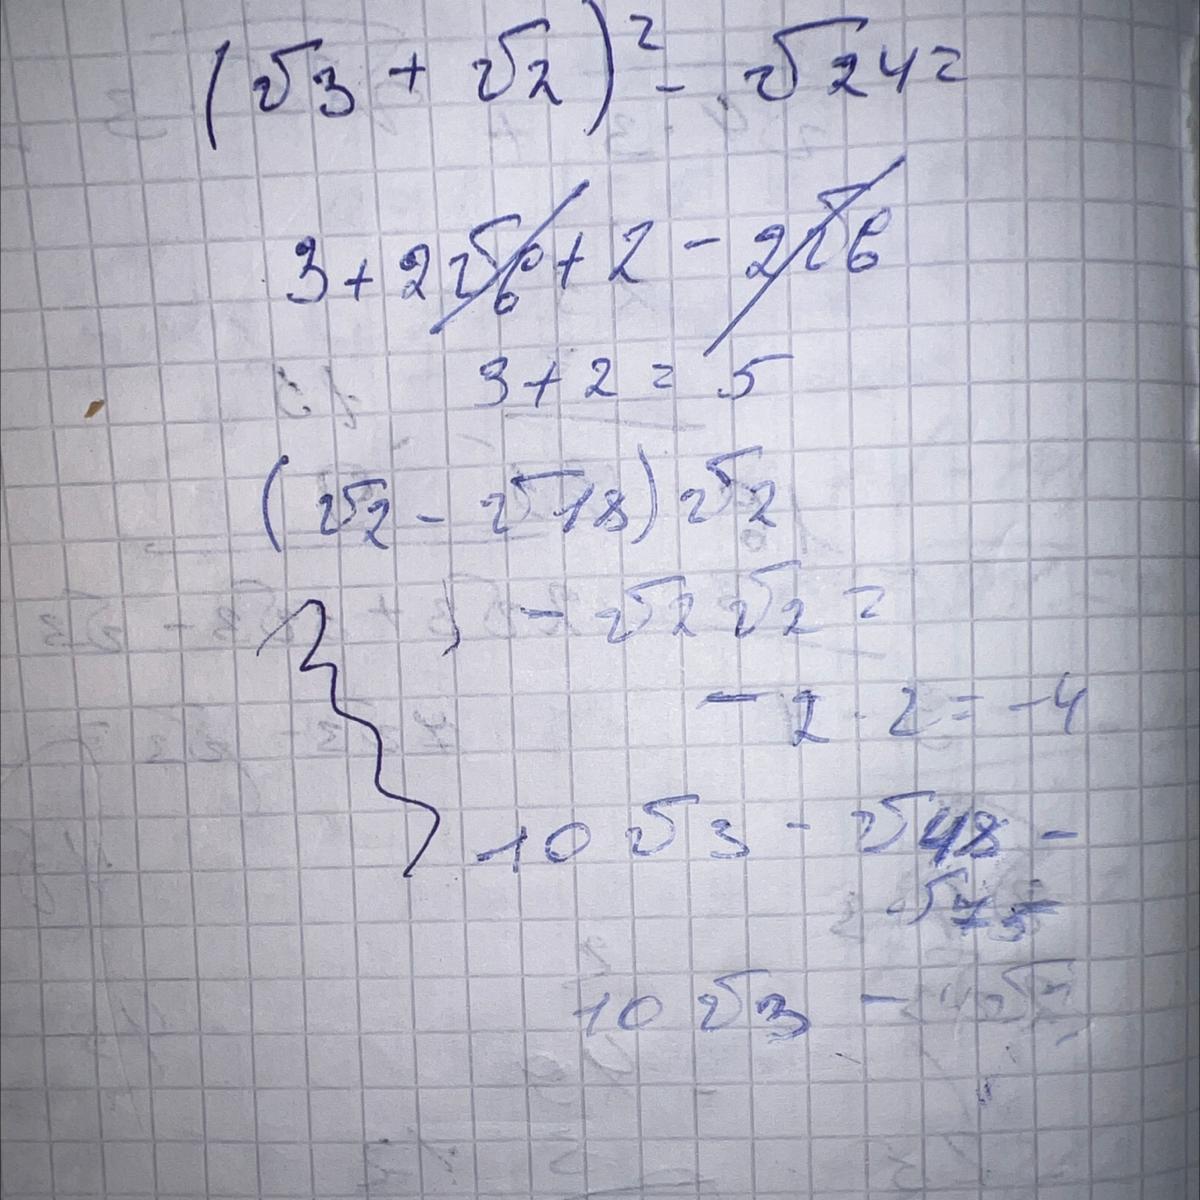 (√3 + √2)² - √24 =
3 + 2√6 + 2 - 2√6
3 + 2 = 5
(√2 - √18) √2
- √2 √2 =
- 2 · 2 = -4
10 √3 - √48 -
√75
10 √3 - 4√3